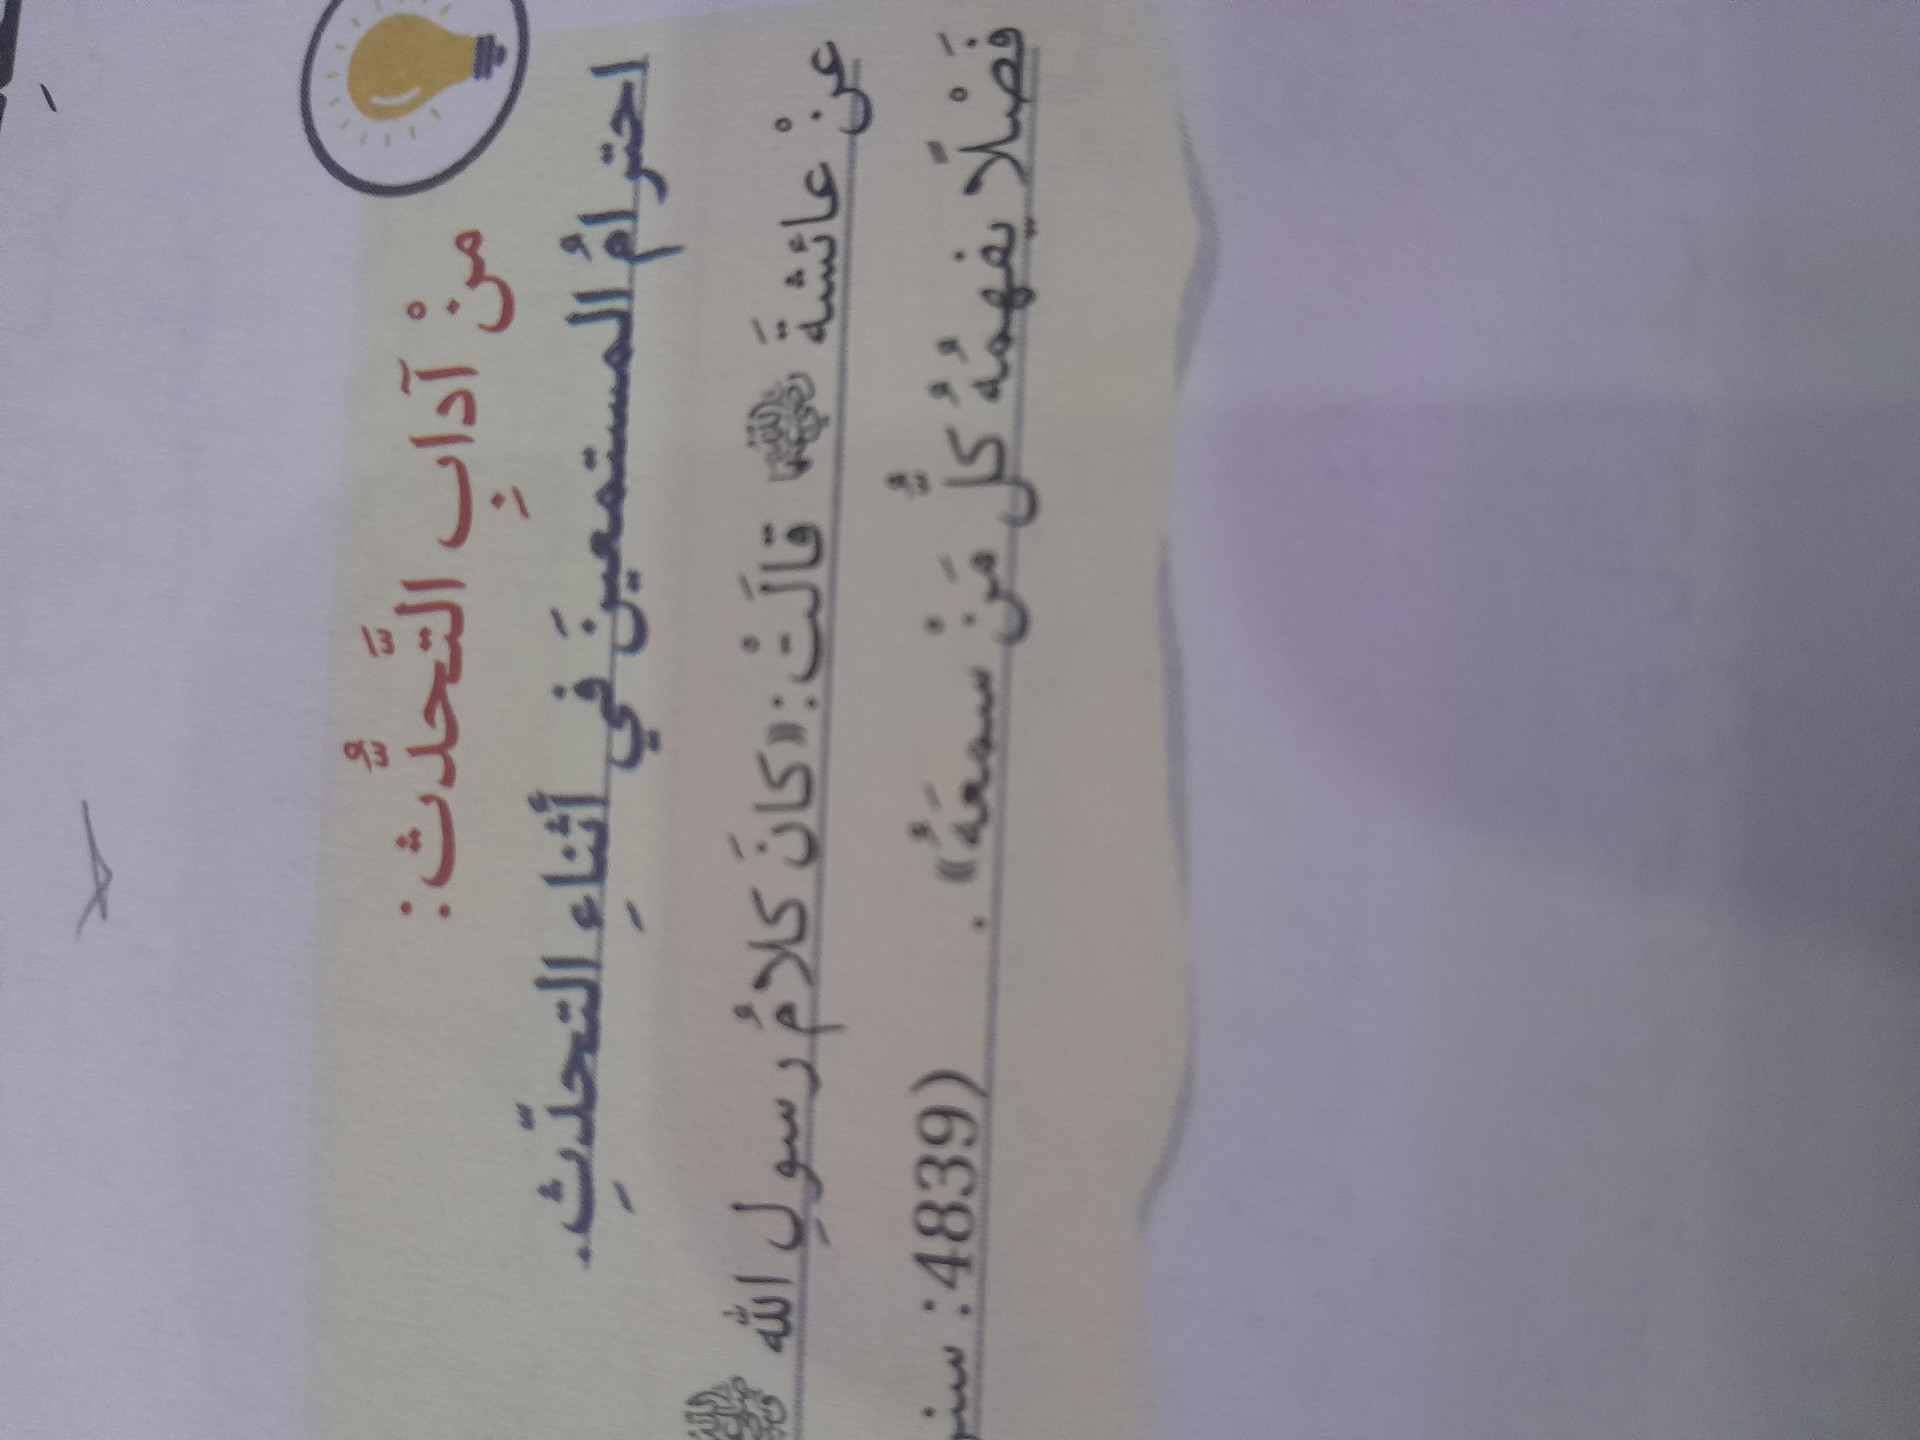 منْ آدابِ التَّحدُّث:
احترامُ المستمعينَ في أثناءِ التحدّثِ.
عنْ عائشةَ رضي الله عنها قالَتْ: «كانَ كلامُ رسولِ الله ﷺ
فَصْلًا يفهمُهُ كلُّ مَنْ سمعَهُ». (4839: سنن